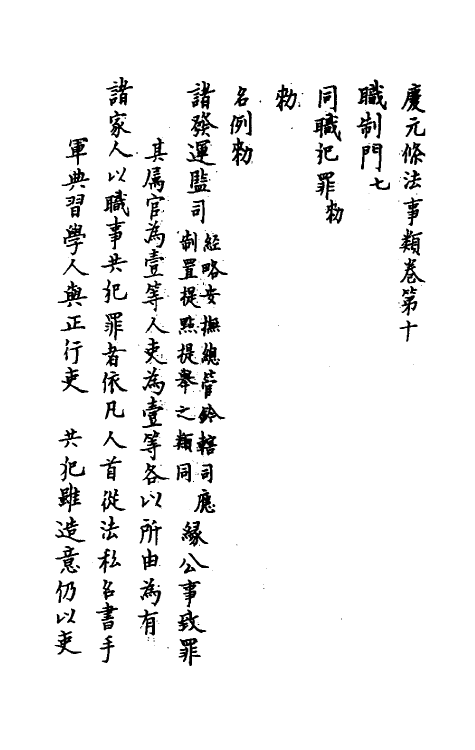 慶元條法事類卷第十
職制門七
同職犯罪勑
勑
名例勑
諸發運監司經略安撫總管鈐轄司應
制置提㸃提舉之類同緣公事致罪
其属官為壹等人吏為壹等各以所由為有
諸家人以職事共犯罪者依凡人首從法私名書手
軍典習學人與正行吏 共犯雖造意仍以吏